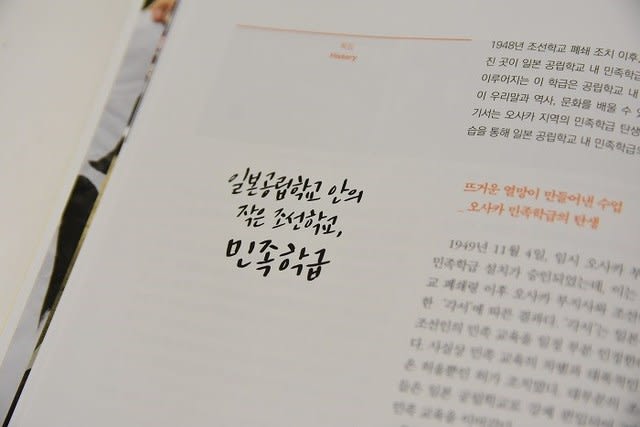 History
일본공립학교 안의
작은 조선학교,
민족학급
1948년 조선학교 폐쇄 조치 이후,
진 곳이 일본 공립학교 내 민족학급
이루어지는 이 학급은 공립학교 내
이 우리말과 역사, 문화를 배울 수 있
기서는 오사카 지역의 민족학급 탄생
습을 통해 일본 공립학교 내 민족학급의
뜨거운 열망이 만들어낸 수업
_ 오사카 민족학급의 탄생
1949년 11월 4일, 임시 오사카 부
민족학급 설치가 승인되었는데, 이는
교 폐쇄령 이후 오사카 부지사와 조선
한 ‘각서’에 따른 결과다. ‘각서’는 일본
조선인의 민족 교육을 일정 부분 인정한
다. 사실상 민족 교육의 차별과
은 허울뿐인 허가 조치였다. 대부분의 조
들은 일본 공립학교로 강제 편입되어
민족 교육을